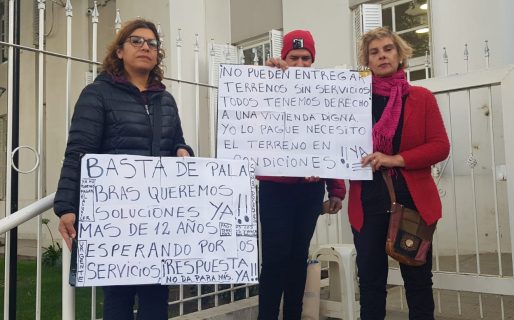 ¡NO PUEDEN ENTREGAR
TERRENOS SIN SERVICIOS
TODOS TENEMOS DERECHO
A UNA VIVIENDA DIGNA
YO LO PAGUE NECESITO
EL TERRENO EN
CONDICIONES!! YA
BASTA DE PALA
BRAS QUEREMOS
SOLUCIONES YA!!
MAS DE 12 AÑOS
ESPERANDO POR LOS
SERVICIOS ¡RESPUESTA
YA!!
NO DA PARA MÁS